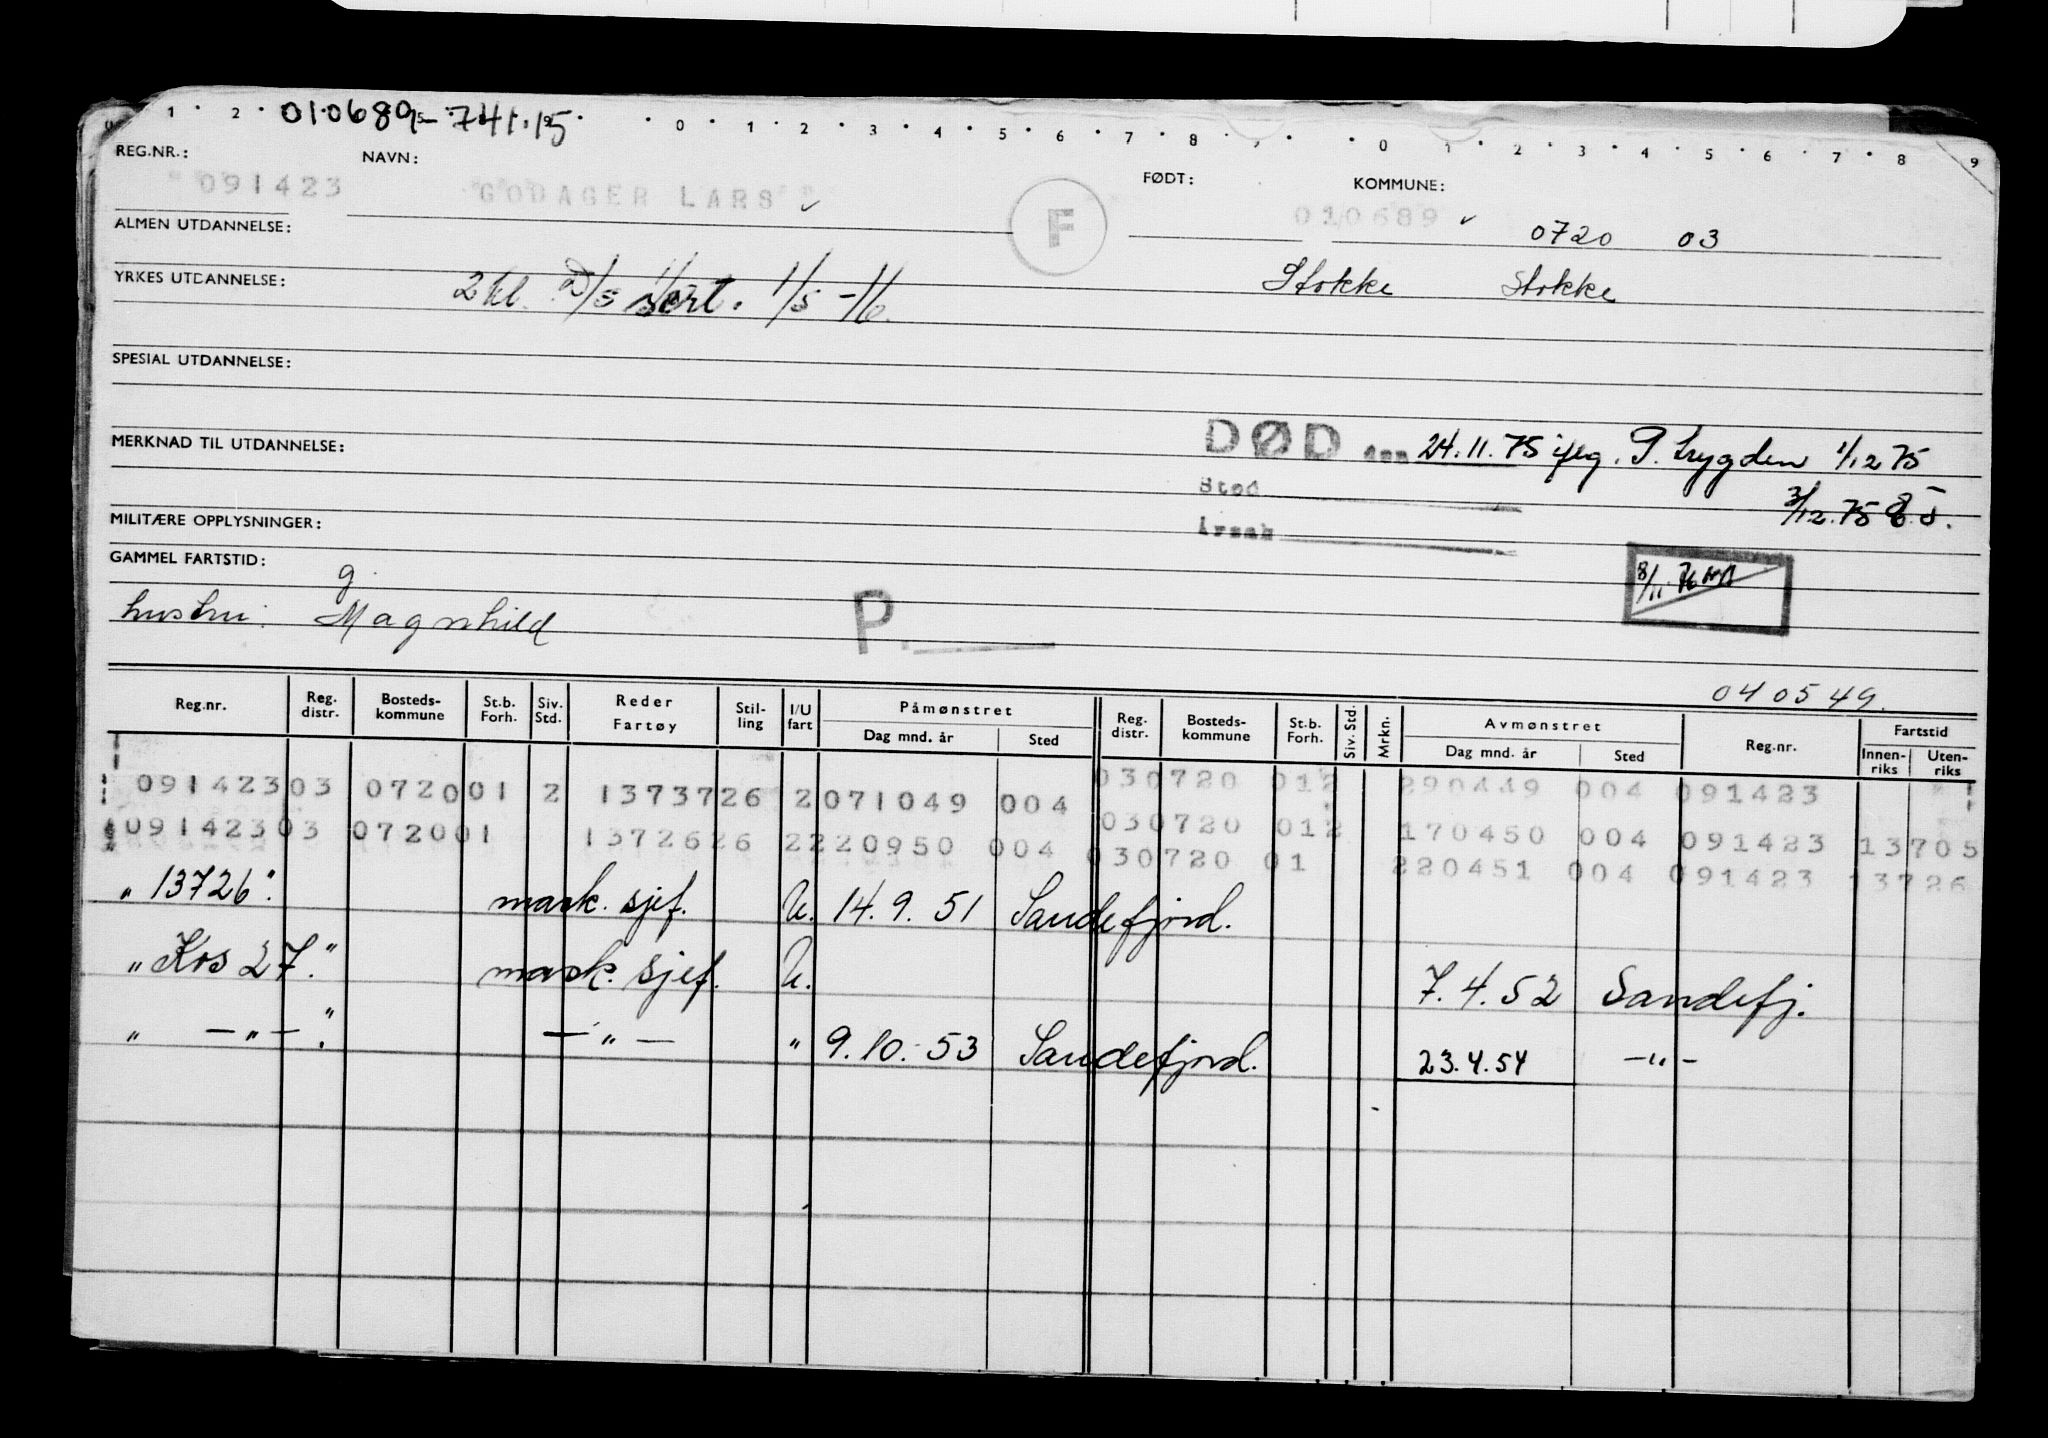 0 1 2 010689 - 741.15 0 1 2 3 4 5 6 7 8 0 1 2 3 4 5 6 7 8 9
REG.NR.: NAVN: FØDT: KOMMUNE:
091423 GODAGER LARS F 010689 0720 03
ALMEN UTDANNELSE:
YRKES UTDANNELSE: 2 kl. D/S sert. 1/5 -16. Stokke Stokke
SPESIAL UTDANNELSE:
MERKNAD TIL UTDANNELSE: DØD den 24.11.75 iflg. P. trygden 1/12 75
Sted 3/12.75
Årsak
MILITÆRE OPPLYSNINGER:
GAMMEL FARTSTID: 8/11 76
g.
hustru: Magnhild P.
040549.
Reg.nr. Reg. distr. Bosteds-kommune St.b. Forh. Siv. Std. Reder Fartøy Stil-ling I/U fart Påmønstret Dag mnd. år Sted Reg. distr. Bosteds-kommune St.b. Forh. Siv. Std. Mrkn. Avmønstret Dag mnd. år Sted Reg.nr. Fartstid Innen-riks Uten-riks
09142303 072001 2 1373726 2071049 004 030720 012 290449 004 091423
09142303 072001 1372626 2220950 004 030720 012 170450 004 091423 13705
030720 01 220451 004 091423 13726
"13726". mask. sjef. U. 14.9.51 Sandefjord.
"Kos 27." mask. sjef. U. 7.4.52 Sandefj.
" —"— ". —"— " 9.10.53 Sandefjord. 23.4.54 —"—